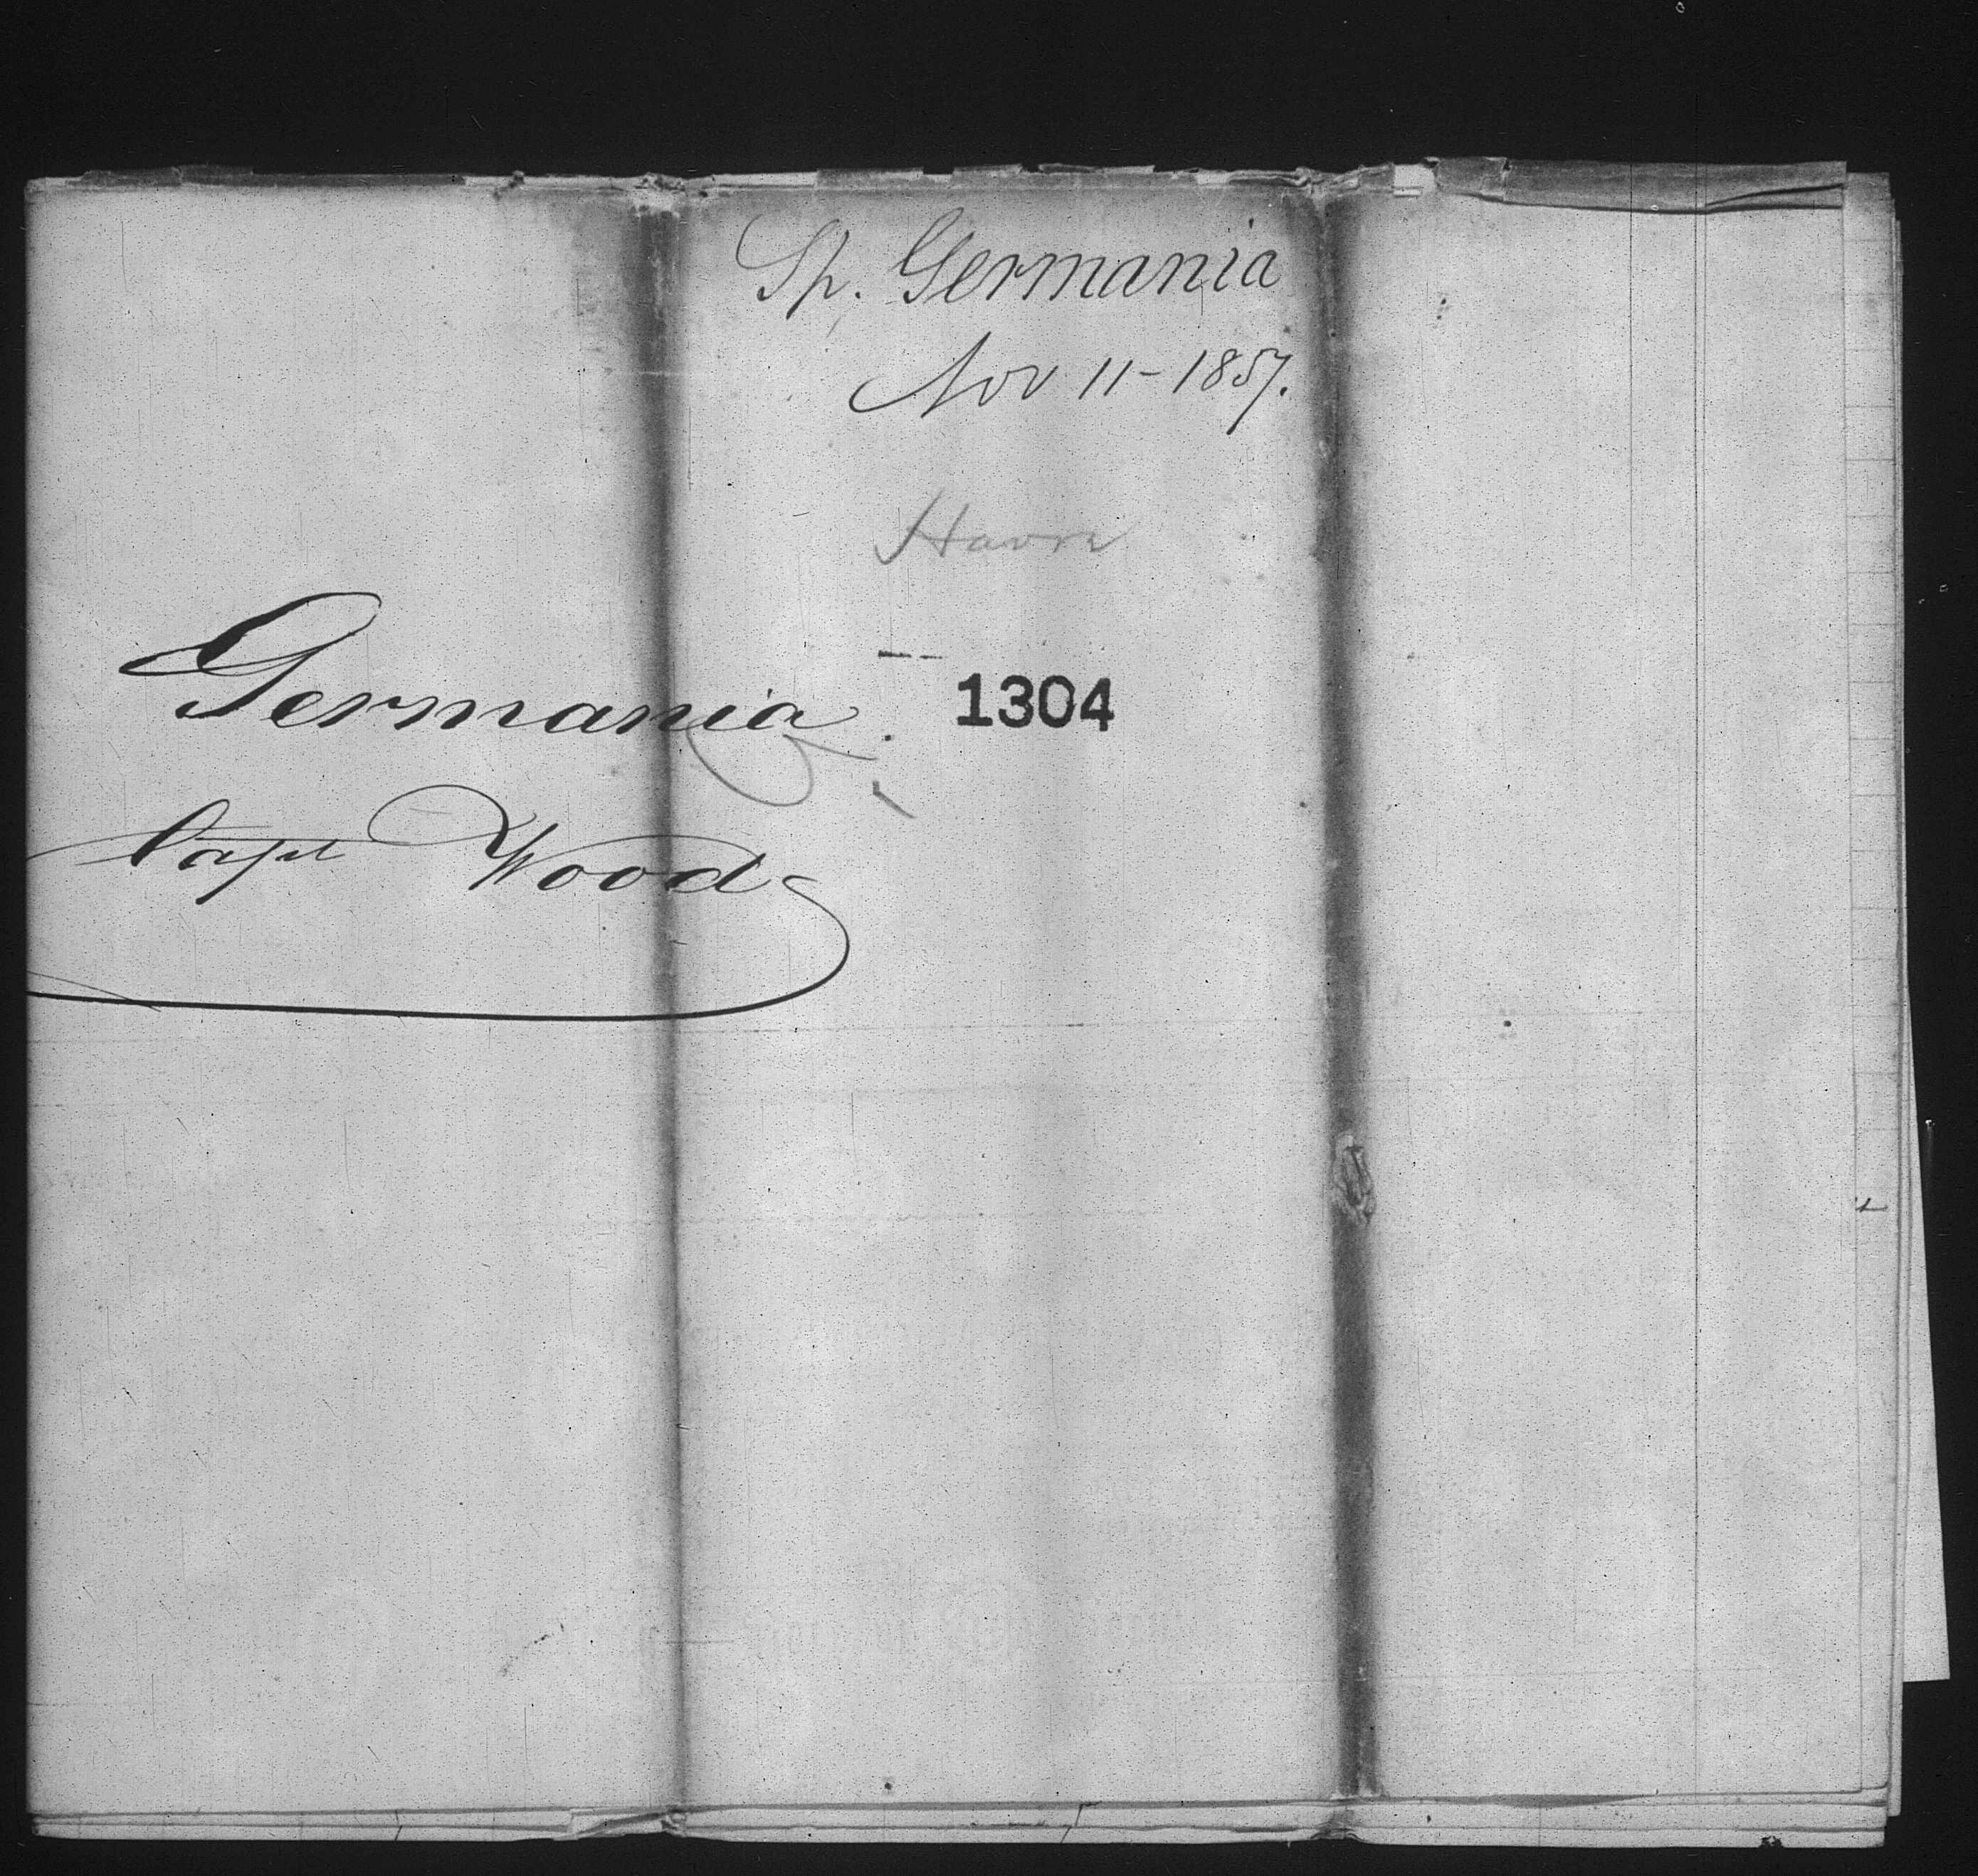 Sp. Germania
Nov 11-1857.
Havre
1304
Germania.
Capt Wood